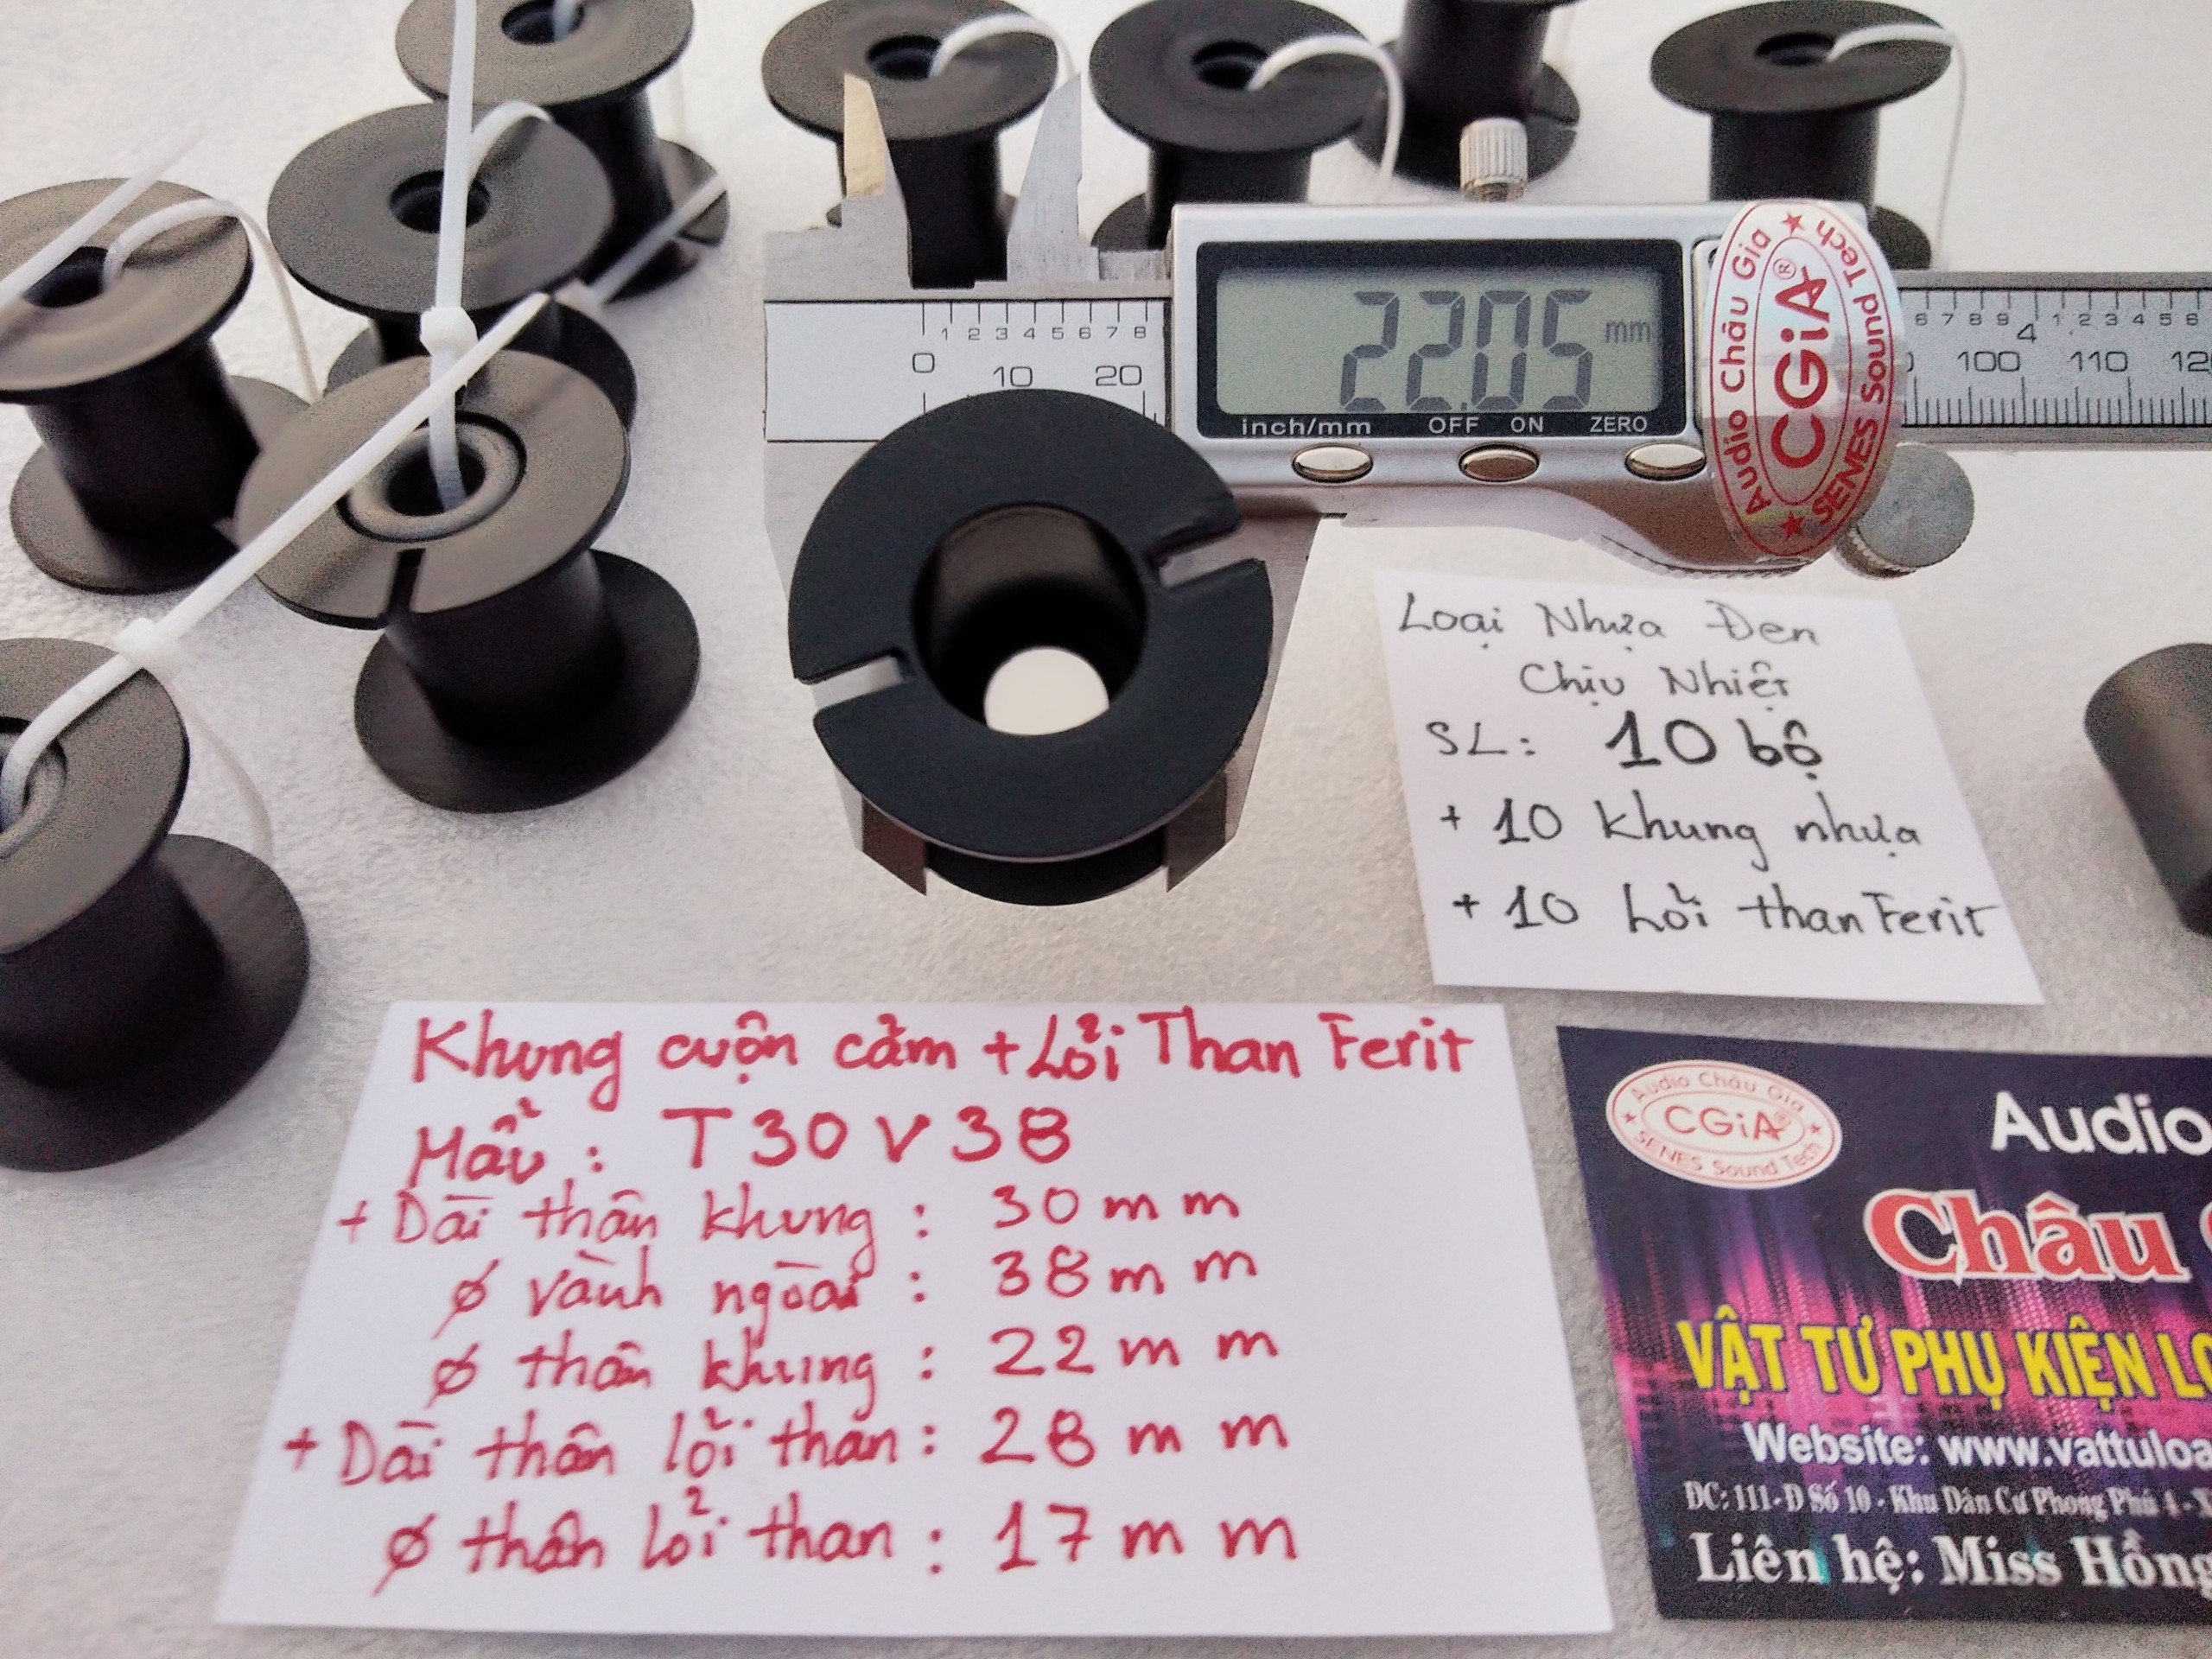 1 2 3 4 5 6 7 8
0 10 20
22.05 mm
inch/mm OFF ON ZERO
Audio Châu Gia
CGiA®
SENES Sound Tech
6 7 8 9 4 1 2 3 4 5 6
100 110
Loại Nhựa Đen
Chịu Nhiệt
SL: 10 bộ
+ 10 khung nhựa
+ 10 Lỏi than Ferit
Khung cuộn cảm + Lỏi Than Ferit
Mẫu : T30V38
+ Dài thân khung : 30mm
ø vành ngoài : 38mm
ø thân khung : 22mm
+ Dài thân lỏi than : 28mm
ø thân lỏi than : 17mm
Audio Châu Gia
CGiA®
SENES Sound Tech
Audio
Châu
VẬT TƯ PHỤ KIỆN LO
Website: www.vattuloa
ĐC: 111-Đ Số 10 - Khu Dân Cư Phong Phú 4 -
Liên hệ: Miss Hồng